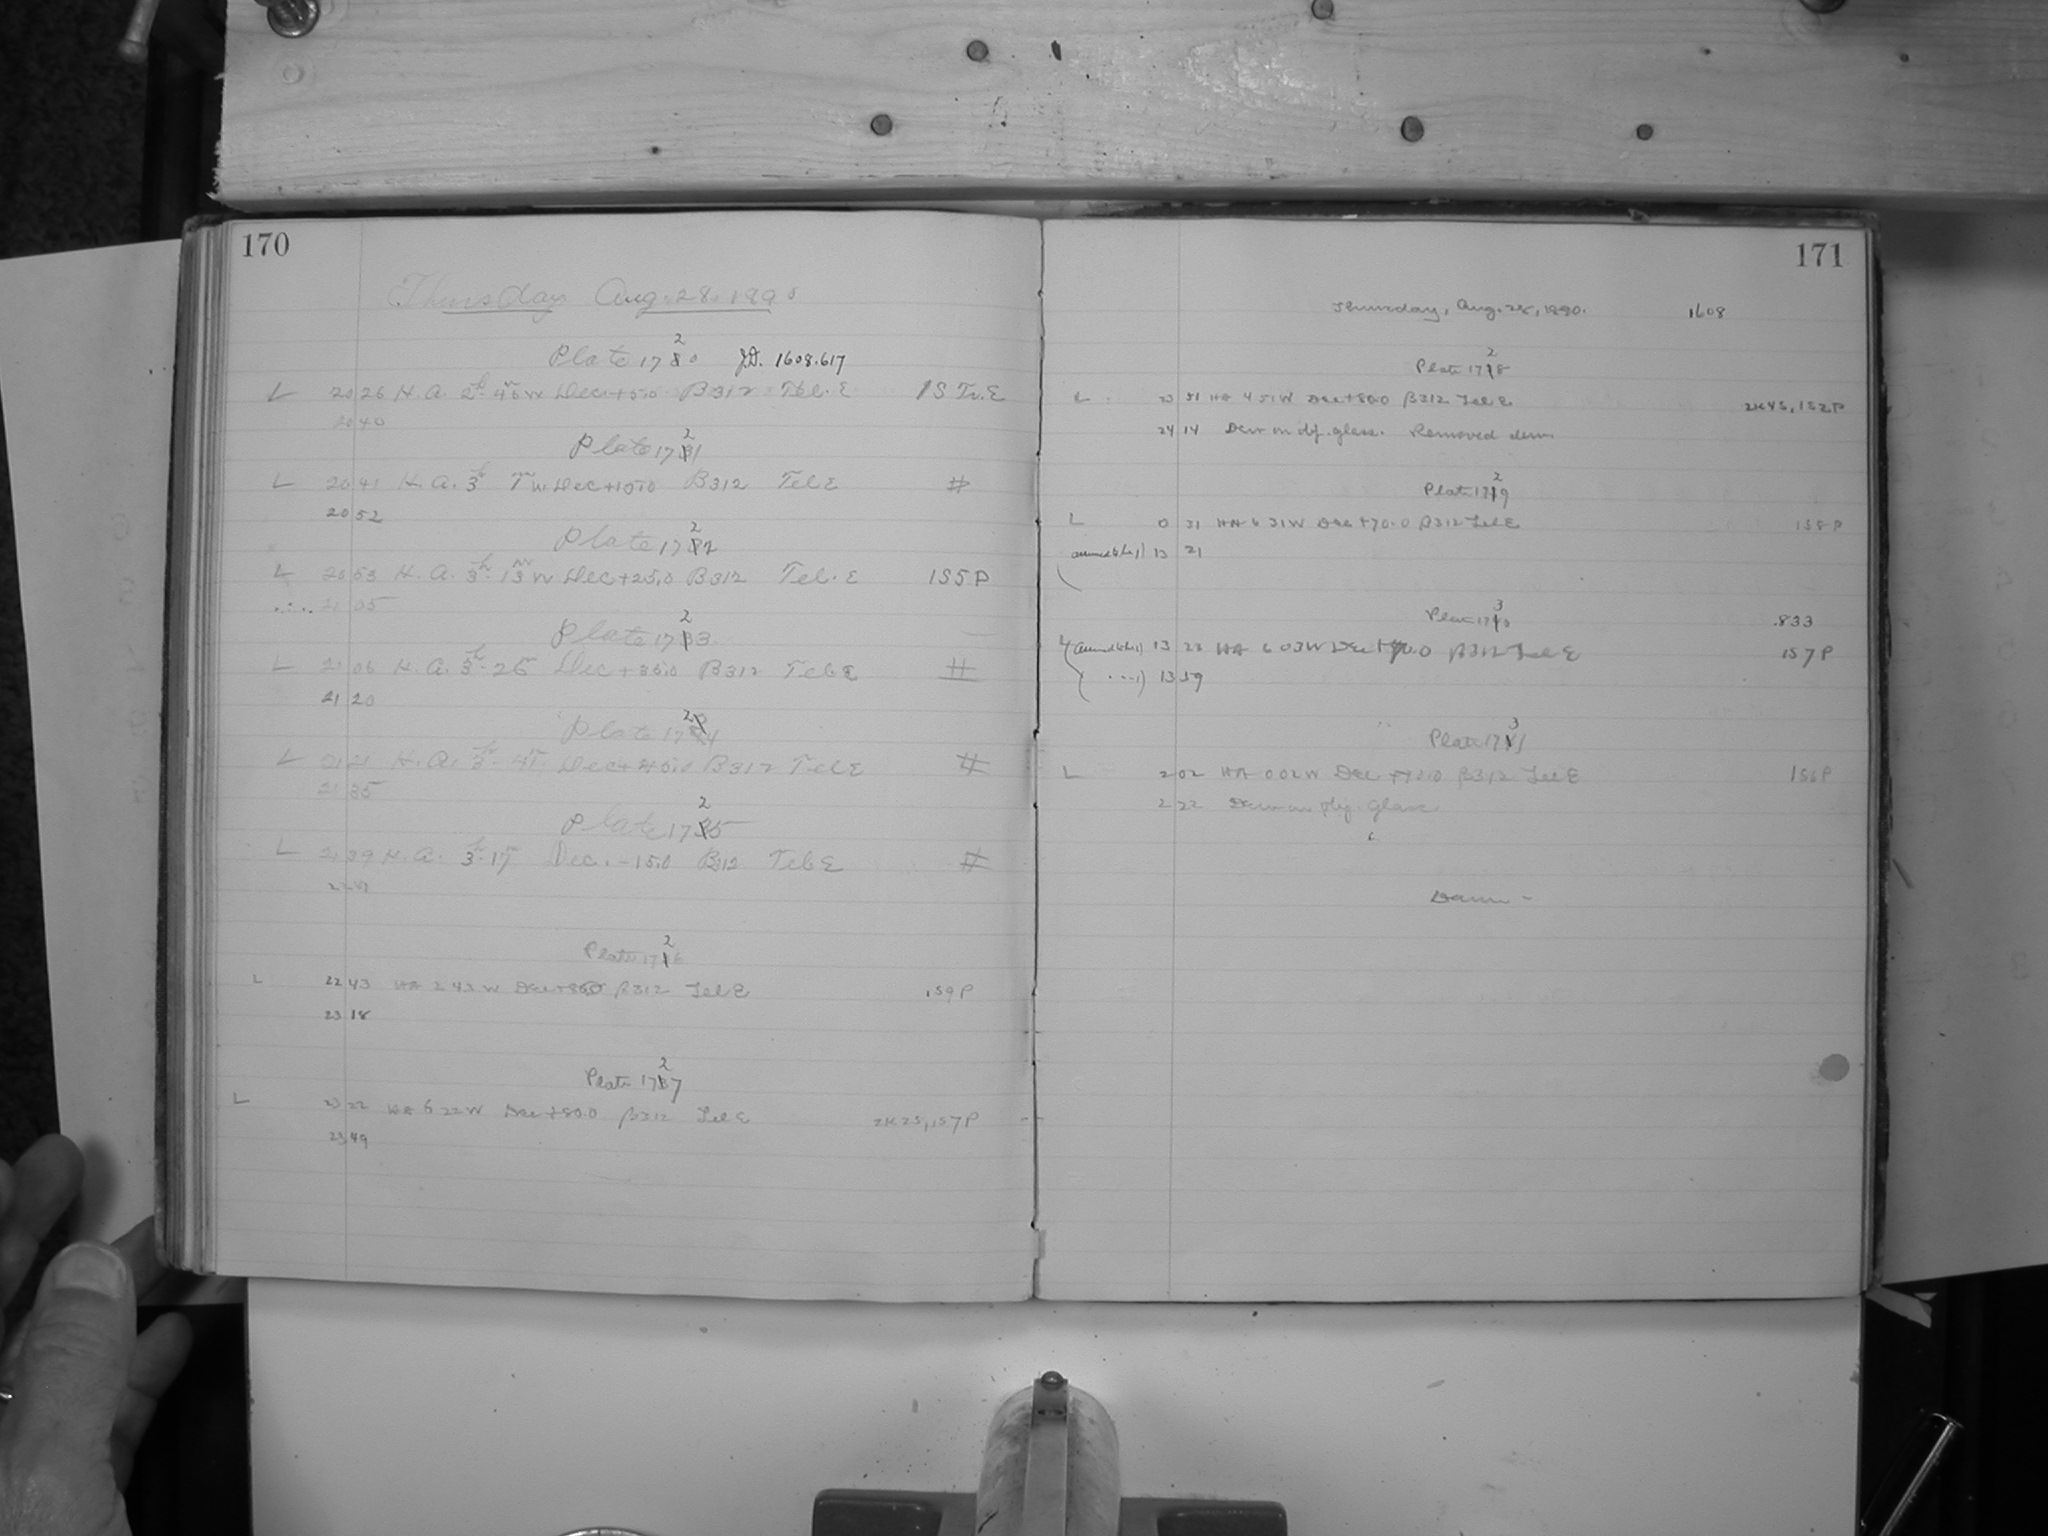 170
Thursday Aug. 28. 1890
2
Plate 1780 J.D. 1608.617
L 20 26 H.A. 2h 46m W Dec + 5.0 B312 Tel. E 1S Tr. E
20 40
2
Plate 1731
L 20 41 H.A. 3h 1m W. Dec + 15.0 B312 Tel E #
20 52
2
Plate 1782
L 20 53 H.A. 3h. 13m W Dec + 25.0 B312 Tel. E 1S5P
21 05
2
Plate 1733
L 21 06 H.A. 3h. 26 Dec + 35.0 B312 Tel E #
21 20
2
Plate 1784
L 21 21 H.A. 3h. 41m Dec + 45.0 B312 Tel E #
21 35
2
Plate 1735
L 21 39 H.A. 3h. 17m Dec. - 15.0 B312 Tel E #
2
Plate 1716
L 22 43 HA 2 43 W Dec + 80 B312 Tel E 1S9P
23 18
2
Plate 1737
L 23 22 HA 6 22 W Dec + 80.0 B312 Tel E 2H2S, 1S7P
23 49
171
Thursday, Aug. 28, 1890. 1608
2
Plate 1718
L 23 51 HA 4 51 W Dec + 80.0 B312 Tel E 2H4S, 1S2P
24 14 Dew on obj. glass. Removed dew
2
Plate 1719
L 0 31 HA 6 31 W Dec + 70.0 B312 Tel E 1S8P
13 21
3
Plate 1710 .833
13 23 HA 6 03 W Dec + 70.0 B312 Tel E 1S7P
13 59
3
Plate 1711
L 2 02 HA 0 02 W Dec + 71.0 B312 Tel E 1S6P
2 22 Dew on obj. glass
Dawn -